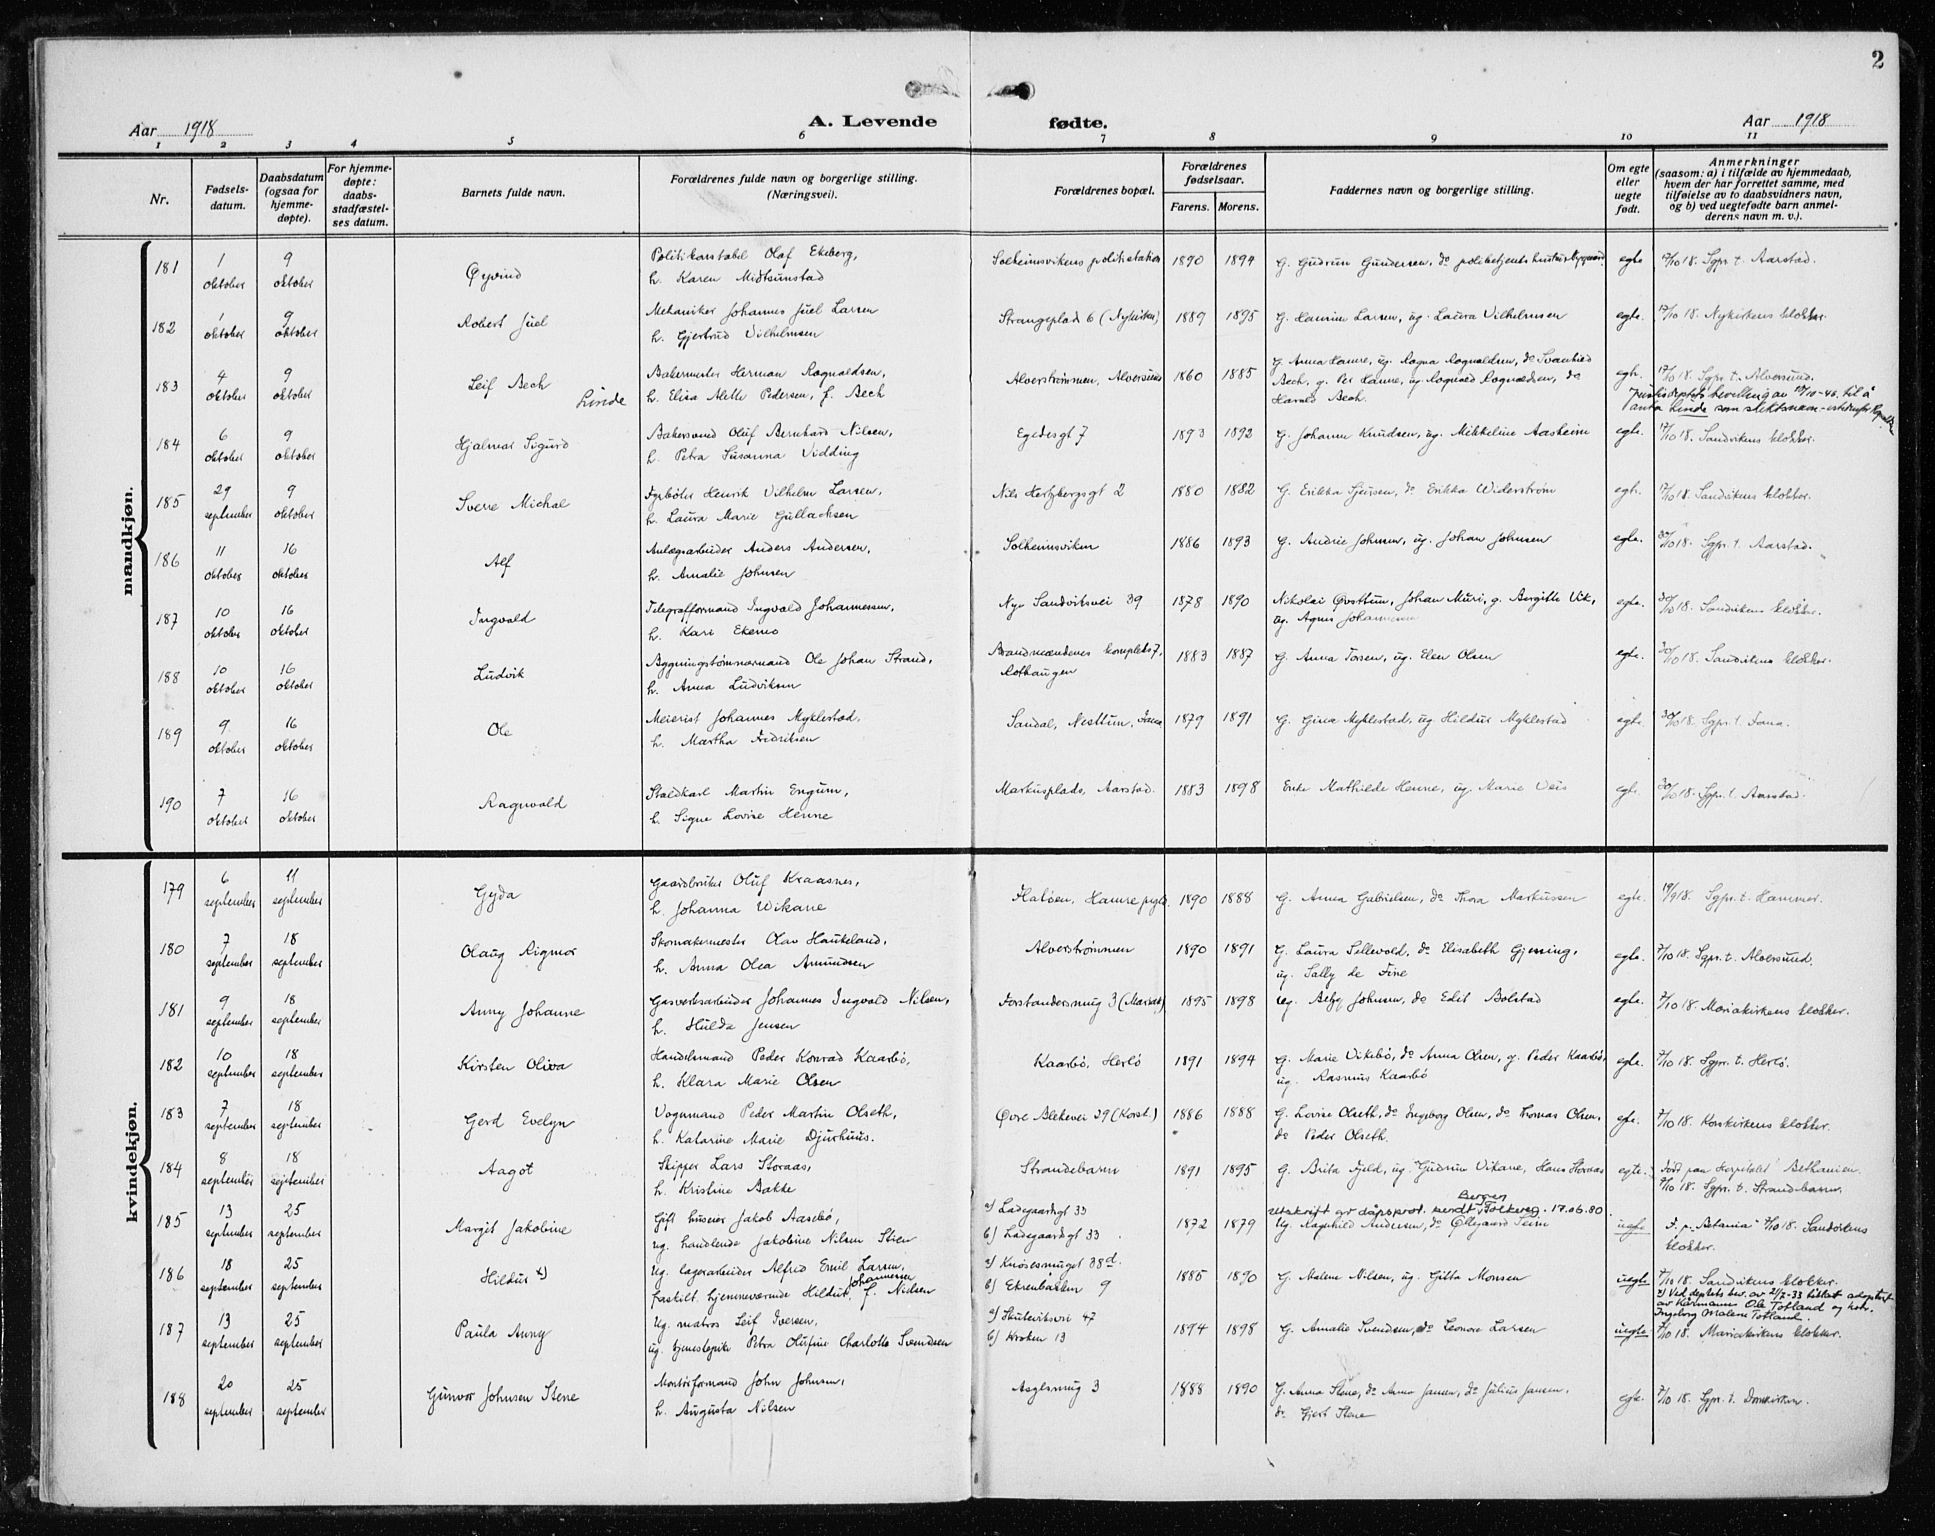 2
Aar 1918
A. Levende
fødte.
Aar 1918
1 2 3 4 5 6 7 8 9 10 11
Nr.
Fødsels-
datum.
Daabsdatum
(ogsaa for
hjemme-
døpte).
For hjemme-
døpte:
daabs-
stadfæstel-
ses datum.
Barnets fulde navn.
Forældrenes fulde navn og borgerlige stilling.
(Næringsvei).
Forældrenes bopæl.
Forældrenes
fødselsaar.
Farens. Morens.
Faddernes navn og borgerlige stilling.
Om egte
eller
uegte
født.
Anmerkninger
(saasom: a) i tilfælde av hjemmedaab,
hvem der har forrettet samme, med
tilføielse av to daabsvidners navn,
og b) ved uegtefødte barn anmel-
derens navn m. v.).
mandkjøn.
181 1 oktober 9 oktober Øyvind
Politikonstabel Olaf Ekeberg,
h. Karen Midtsunstad
Solheimsvikens politistation 1890 1894 G. Gudrun Gundersen, do egte 17/10 18. Sgpr. t. Aarstad.
182 1 oktober 9 oktober Robert Juel
Mekaniker Johannes Juel Larsen
h. Gjertrud Vilhelmsen
Strangeplads 6 (Nykirken) 1889 1895 Larsen, ug. Laura Vilhelmsen egte. 17/10 18. Nykirkens klokker.
183 4 oktober 9 oktober Leif Bech Linde
Bakermester Herman Ragnaldsen,
h. Elisa Alette Pedersen, f. Bech
Alverstrømmen, Alversund 1860 1885
G. Anna Hamre, ug. Ragna Ragnaldsen, do Svanhild
Bech, g. Per Hamre, ug. Ragnvald Ragnaldsen, do
Harald Bech.
egte. 17/10 18. Sgpr. t. Alversund.
bevilling av til å
anta Linde som slektsnavn
184 6 oktober 9 oktober Hjalmar Sigurd
Bakersvend Oluf Bernhard Nilsen,
h. Petra Susanna Vidding
Egedesgt 7 1893 1892 G. Johanna Knudsen, ug. Mikkeline Aasheim egte. 17/10 18. Sandvikens klokker.
185 29 september 9 oktober Sverre Michal
Fyrbøter Henrik Vilhelm Larsen,
h. Laura Marie Gullachsen
Nils Hertzbergsgt 2 1880 1882 G. Erikka Sjursen, do Erikka Widerstrøm egte. 17/10 18. Sandvikens klokker.
186 11 oktober 16 oktober Alf
Anlægsarbeider Anders Andersen,
h. Amalie Johnsen
Solheimsviken 1886 1893 G. Johnsen, ug. Johan Johnsen egte. 30/10 18. Sgpr. t. Aarstad.
187 10 oktober 16 oktober Ingvald
Telegrafformand Ingvald Johannessen,
h. Kari Ekemo
Nye Sandviksvei 39 1878 1890
Nikolai Øvsttun, Johan Muri, g. Bergitte Vik,
ug. Agnes Johannesen
egte. 30/10 18. Sandvikens klokker.
188 10 oktober 16 oktober Ludvik
Bygningstømmermand Ole Johan Strand,
h. Anna Ludviksen
Brandmændenes kompleks 7,
Rothaugen
1883 1887 G. Anna Torsen, ug. Elen Olsen egte. 30/10 18. Sandvikens klokker.
189 9 oktober 16 oktober Ole
Meierist Johannes Myklestad,
h. Martha Fredriksen
Sandal, Nesttun, Fana 1879 1891 G. Gina Myklestad, ug. Hildur Myklestad egte. 30/10 18. Sgpr. t. Fana.
190 7 oktober 16 oktober Ragnvald
Staldkarl Martin Engum,
h. Signe Lovise Henne
Markusplads, Aarstad. 1883 1898 Enke Mathilde Henne, ug. Marie Veis egte. 30/10 18. Sgpr. t. Aarstad.
kvindekjøn.
179 6 september 11 september Gyda
Gaardbruker Oluf Kraasnes,
h. Johanna Vikane
Flatøen, Hamre pgld. 1890 1888 G. Anna Gabrielsen, do Thora Markussen egte. 19/9 18. Sgpr. t. Hammer.
180 7 september 18 september Olaug Rigmor
Skomakermester Olav Haukeland,
h. Anna Olea Amundsen
Alverstrømmen 1890 1891
G. Laura Sellevold, do Elisabeth Gjessing,
ug. Sally de Fine
egte. 7/10 18. Sgpr. t. Alversund.
181 9 september 18 september Anny Johanne
Gasverksarbeider Johannes Ingvald Nilsen,
h. Hulda Jensen
Forstandersmug 3 (Mariak) 1895 1898 ug. Johnsen, do Edit Bolstad egte. 7/10 18. Mariakirkens klokker.
182 10 september 18 september Kirsten Oliva
Handelsmand Peder Konrad Kaarbø,
h. Klara Marie Olsen
Kaarbø, Herlø 1891 1894
G. Marie Vikebø, do Anna Olsen, g. Peder Kaarbø,
ug. Rasmus Kaarbø
egte. 7/10 18. Sgpr. t. Herlø.
183 7 september 18 september Gerd Evelyn
Vognmand Peder Martin Olseth,
h. Katarine Marie Djurhuus.
Øvre Blekevei 29 (Korsk.) 1886 1888
G. Lovise Olseth, do Ingeborg Olsen, do Thomas Olsen,
do Peder Olseth.
egte. 7/10 18. Korskirkens klokker.
184 8 september 18 september Aagot
Skipper Lars Storaas,
h. Kristine Bakke
Strandebarm 1891 1895 G. Brita Fjeld, ug. Gudrun Vikane, Hans Storaas egte.
Født paa Hospitalet Bethanien.
7/10 18. Sgpr. t. Strandebarm.
185 13 september 25 september Margit Jakobine
Gift huseier Jakob Aasebø,
ug. handlende Jakobine Nilsen Stien
a) Ladegaardsgt 33
b) Ladegaardsgt 33
1872 1879
Utskrift av dåpsprot. sendt Bergen Folkereg. 17.06.80
Ug. Ragnhild Andersen, do Øllegaard Seim
uegte
F. p. "Betania" 7/10 18. Sandvikens
klokker.
186 18 september 25 september Hildur x)
Ug. lagerarbeider Alfred Emil Larsen,
fraskilt hjemmeværende Hildur Johannessen f. Nielsen
a) Knøsesmuget 38d.
b) Ekrenbakken 9
1885 1890 G. Malene Nilsen, ug. Gitta Monsen uegte
7/10 18. Sandvikens klokker.
x) Ved deptets bev. av 2/2-33 tillatt adoptert
av Ole Totland og hstr.
Ingeborg Malene Totland.
187 13 september 25 september Paula Anny
Ug. matros Leif Iversen,
ug. tjenestepike Petra Olufine Charlotte Svendsen
a) Skuteviksvei 47
b) Kroken 13
1894 1898 G. Amalie Svendsen, do Leonore Larsen uegte 7/10 18. Mariakirkens klokker.
188 20 september 25 september Gunvor Johnsen Stene
Montørformand John Johnsen,
h. Augusta Nilsen
Asylsmug 3 1888 1890
G. Anna Stene, do Anna Jansen, do Julius Jansen,
do Gjert Stene
egte. 7/10 18. Sgpr. t. Domkirken.